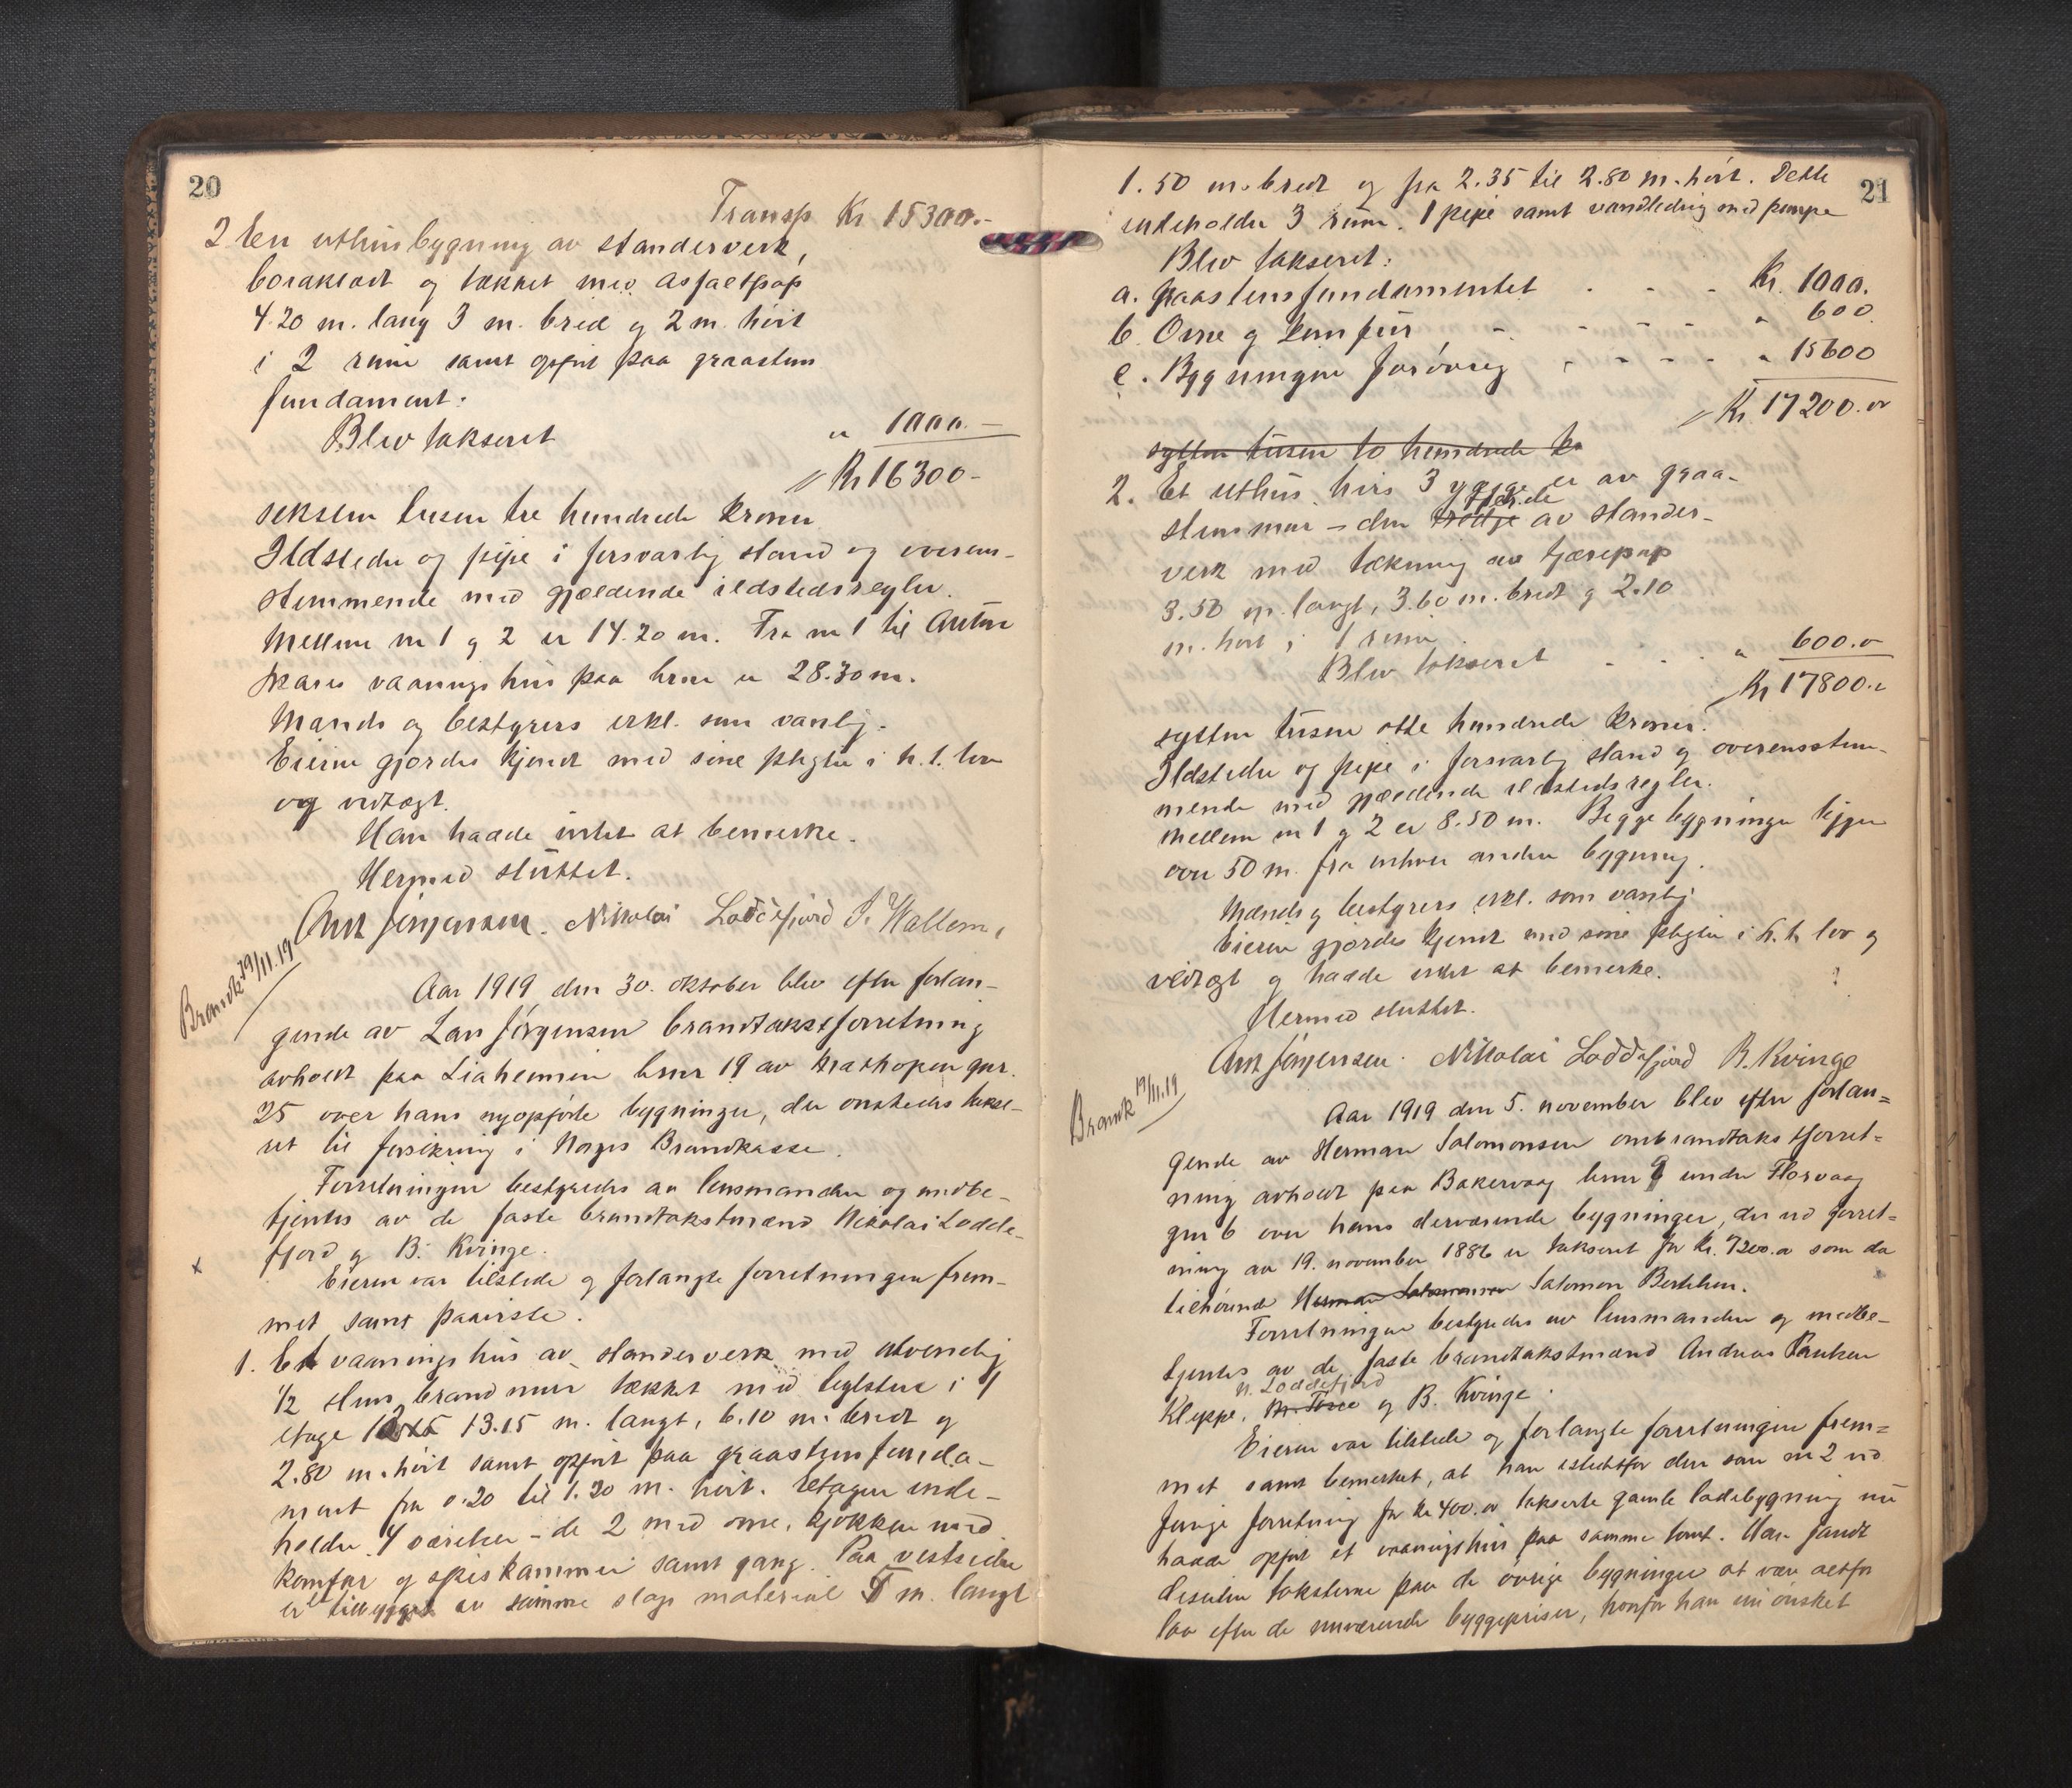 20
Transp Kr 15300.-
2 En uthusbygning av standerverk,
bordklædt og tækket med asfaltpap
4.20 m. lang 3 m. bred og 2 m. höit
i 2 rum samt opfört paa graastens
fundament.
Blev takseret " 1000.-
Kr 16300-
seksten tusen tre hundrede kroner
Ildsteder og pipe i forsvarlig stand og overens-
stemmende med gjældende ildstedsregler.
Mellem nr 1 og 2 er 14.20 m. Fra nr 1 til Anton
vaaningshus paa brnr er 28.30 m.
Mænds og bestyrers erkl. som vanlig.
Eieren gjordes kjendt med sine pligter i h. t. lov
og vedtægt.
Han hadde intet at bemerke.
Hermed sluttet.
Ant Jörgensen. Nikolai Loddefjord J. Hallem
Brandk 19/11.19
Aar 1919 den 30. oktober blev efter forlan-
gende av Lars Jörgensen brandtakstforretning
avholdt paa Liaheimen brnr 19 av Strathopen gnr.
25 over hans nyopförte bygninger, der önskedes takse-
ret til forsikring i Norges Brandkasse.
Forretningen bestyredes av lensmanden og medbe-
tjentes av de faste brandtakstmænd Nikolai Lodde-
fjord og B. Kvinge.
x
Eieren var tilstede og forlangte forretningen frem-
met samt paaviste.
1. Et vaaningshus av standerverk med utvendig
1/2 stens brandmur tækket med teglsten i 1
etage 13.15 m. langt, 6.10 m. bredt og
2.80 m. höit samt opfört paa graastensfunda-
ment fra 0.20 til 1.20 m. höit. Etagen inde-
holder 4 værelser - de 2 med ovne, kjökken med
komfur og spiskammer samt gang. Paa vestsiden
er tilbygget av samme slags material 5 m. langt
21
1.50 m. bredt og fra 2.35 til 2.80 m. höit. Dette
indeholder 3 rum. 1 pipe samt vandledning med pumpe
Blev takseret:
a. Graastensfundamentet - - - Kr. 1000.
b. Ovne og komfur - - - - - " 600
c. Bygningen forövrig - - - - " 15600
Kr. 17200.-
sytten tusen to hundrede kr
2. Et uthus hvis 3 vægge er av graa-
stensmur - den fjerde av stander-
verk med tækning av tjærepap
3.50 m. langt, 3.60 m. bredt og 2.10
m. höit i 1 rum.
Blev takseret - - - " 600.-
Kr 17800.-
sytten tusen otte hundrede kroner.
Ildsteder og pipe i forsvarlig stand og overensstem-
mende med gjældende ildstedsregler.
Mellem nr 1 og 2 er 8.50 m. Begge bygninger ligger
over 50 m. fra enhver anden bygning.
Mænds og bestyrers erkl. som vanlig
Eieren gjordes kjendt med sine pligter i h. t. lov og
vedtægt og hadde intet at bemerke.
Hermed sluttet.
Ant Jörgensen. Nikolai Loddefjord B. Kvinge
Brandk 19/11.19
Aar 1919 den 5. november blev efter forlan=
gende av Herman Salomonsen ombrandtakstforret=
ning avholdt paa Bakervaag brnr 9 under Florvaag
gnr 6 over hans derværende bygninger, der ved forret=
ning av 19. november 1886 er takseret for Kr. 7200.- som da
tilhörende Herman Salomonsen Salomon Bertelsen.
Forretningen bestyredes av lensmanden og medbe-
tjentes av de faste brandtakstmænd Andreas
N. Loddefjord
Kleppe, og B. Kvinge.
Eieren var tilstede og forlangte forretningen frem=
met samt bemerket, at han istedetfor den som nr 2 ved
forrige forretning for kr 400.- takserte gamle ladebygning nu
hadde opfört et vaaningshus paa samme tomt. Han fandt
desuten taksterne paa de övrige bygninger at være altfor
lav efter de nuværende byggepriser, hvorfor han nu önsket